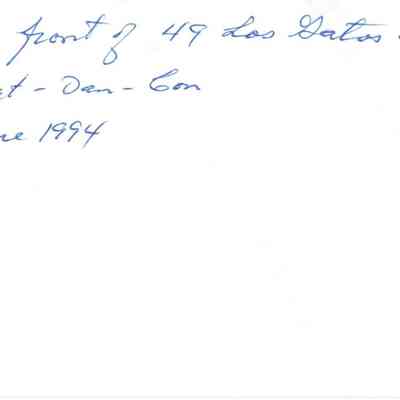 front of 49 Los Gatos
t - Dan - Con
1994